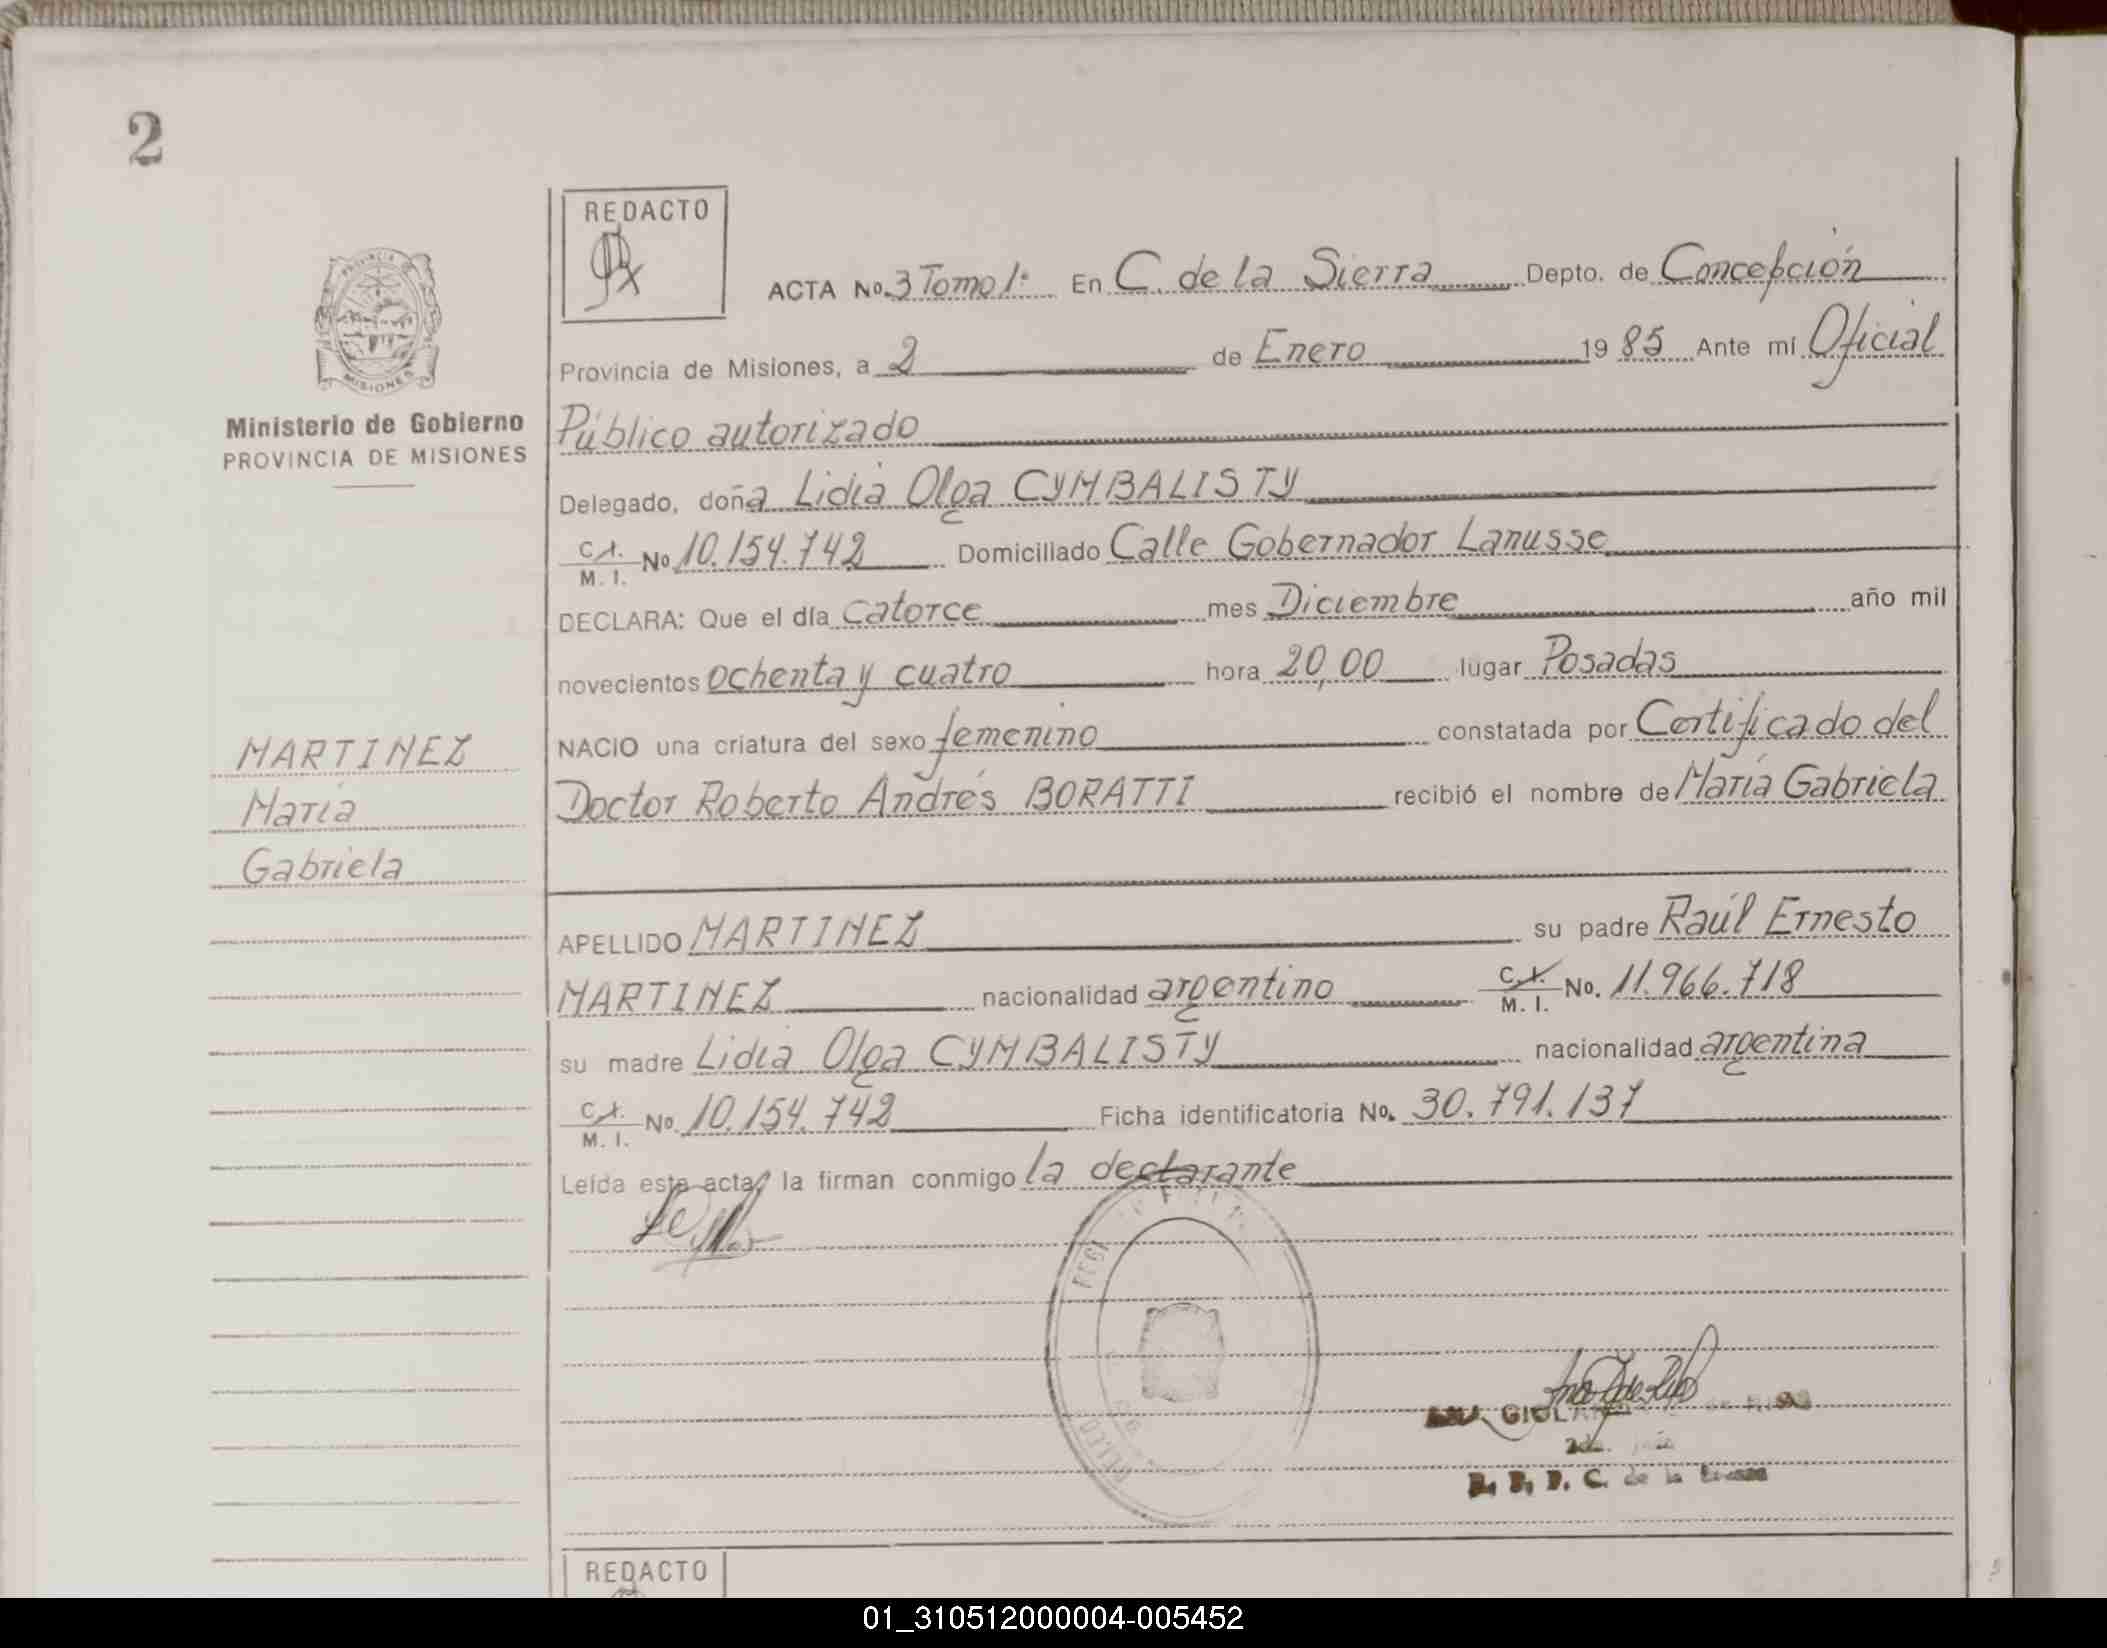 2
REDACTO
PROVINCIA DE
MISIONES
Ministerio de Gobierno
PROVINCIA DE MISIONES
ACTA No. 3 Tomo 1º En C. de la Sierra Depto. de Concepción
Provincia de Misiones, a 2 de Enero 1985 Ante mí Oficial
Público autorizado
Delegado, doña Lidia Olga CYMBALISTY
C.I. M. I. No 10.154.742 Domiciliado Calle Gobernador Lanusse
DECLARA: Que el día catorce mes Diciembre año mil
novecientos ochenta y cuatro hora 20,00 lugar Posadas
NACIO una criatura del sexo femenino constatada por Certificado del
Doctor Roberto Andrés BORATTI recibió el nombre de María Gabriela
MARTINEZ
María
Gabriela
APELLIDO MARTINEZ su padre Raúl Ernesto
MARTINEZ nacionalidad argentino C.I. M. I. No. 11.966.718
su madre Lidia Olga CYMBALISTY nacionalidad argentina
C.I. M. I. No. 10.154.742 Ficha identificatoria No. 30.791.137
Leída esta acta, la firman conmigo la declarante
de la
REDACTO
01_310512000004-005452